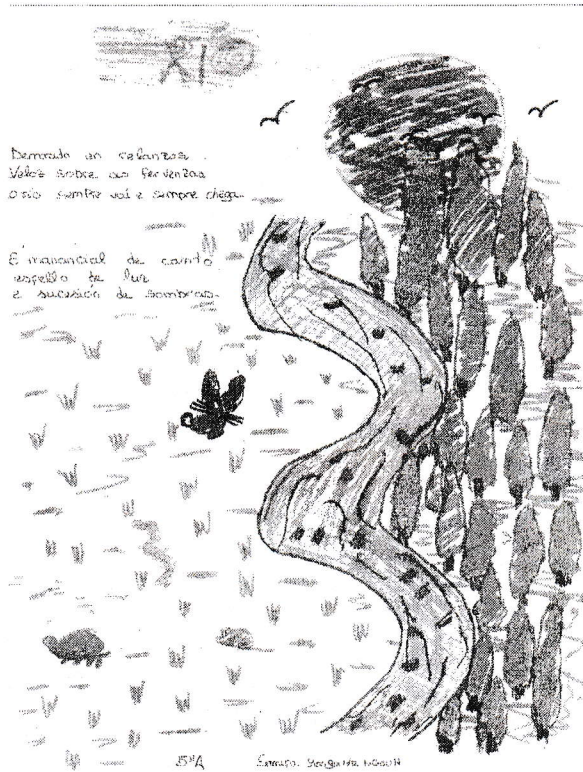 RIO
Demorado en
Veloz sobre as fervenzas
o río sempre vai e sempre chega.
É manancial de canto
espello de luz
e sucesión de sombras.
5ºA